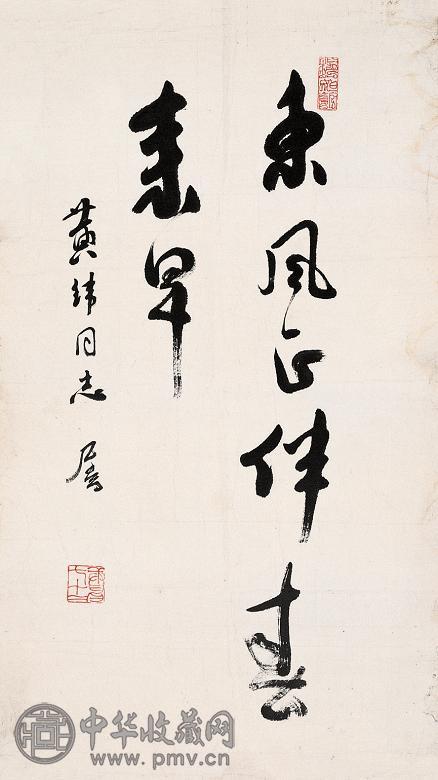 東風正伴春
來早
黄緯同志 屬
中华收藏网
www.pmv.cn